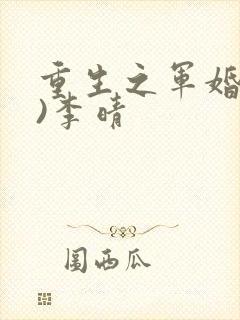 重生之军婚
)李晴
圆西瓜